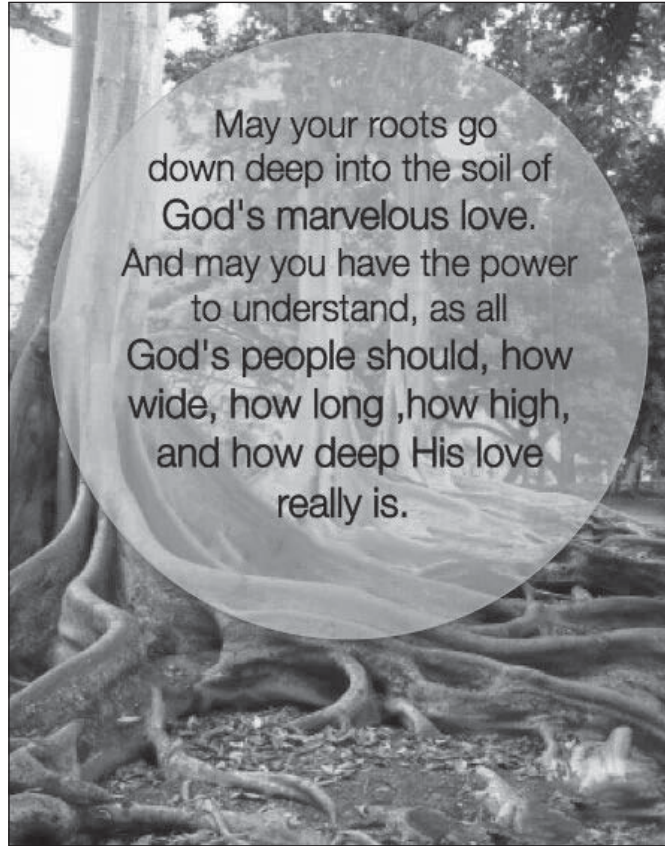 May your roots go
down deep into the soil of
God's marvelous love.
And may you have the power
to understand, as all
God's people should, how
wide, how long ,how high,
and how deep His love
really is.